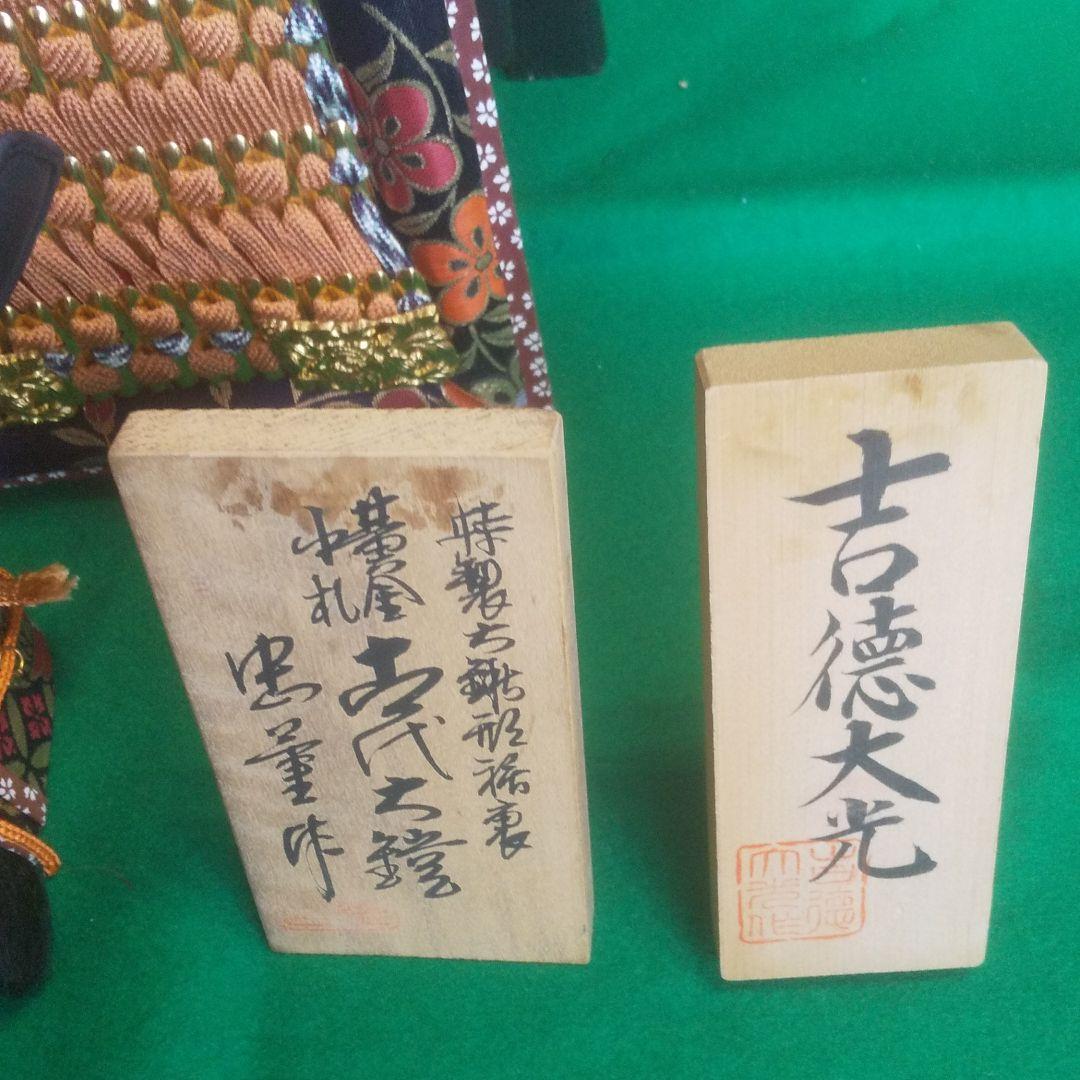 特製大鍬形裾裏
黄金
小札
古代大鎧
忠量作
吉德大光